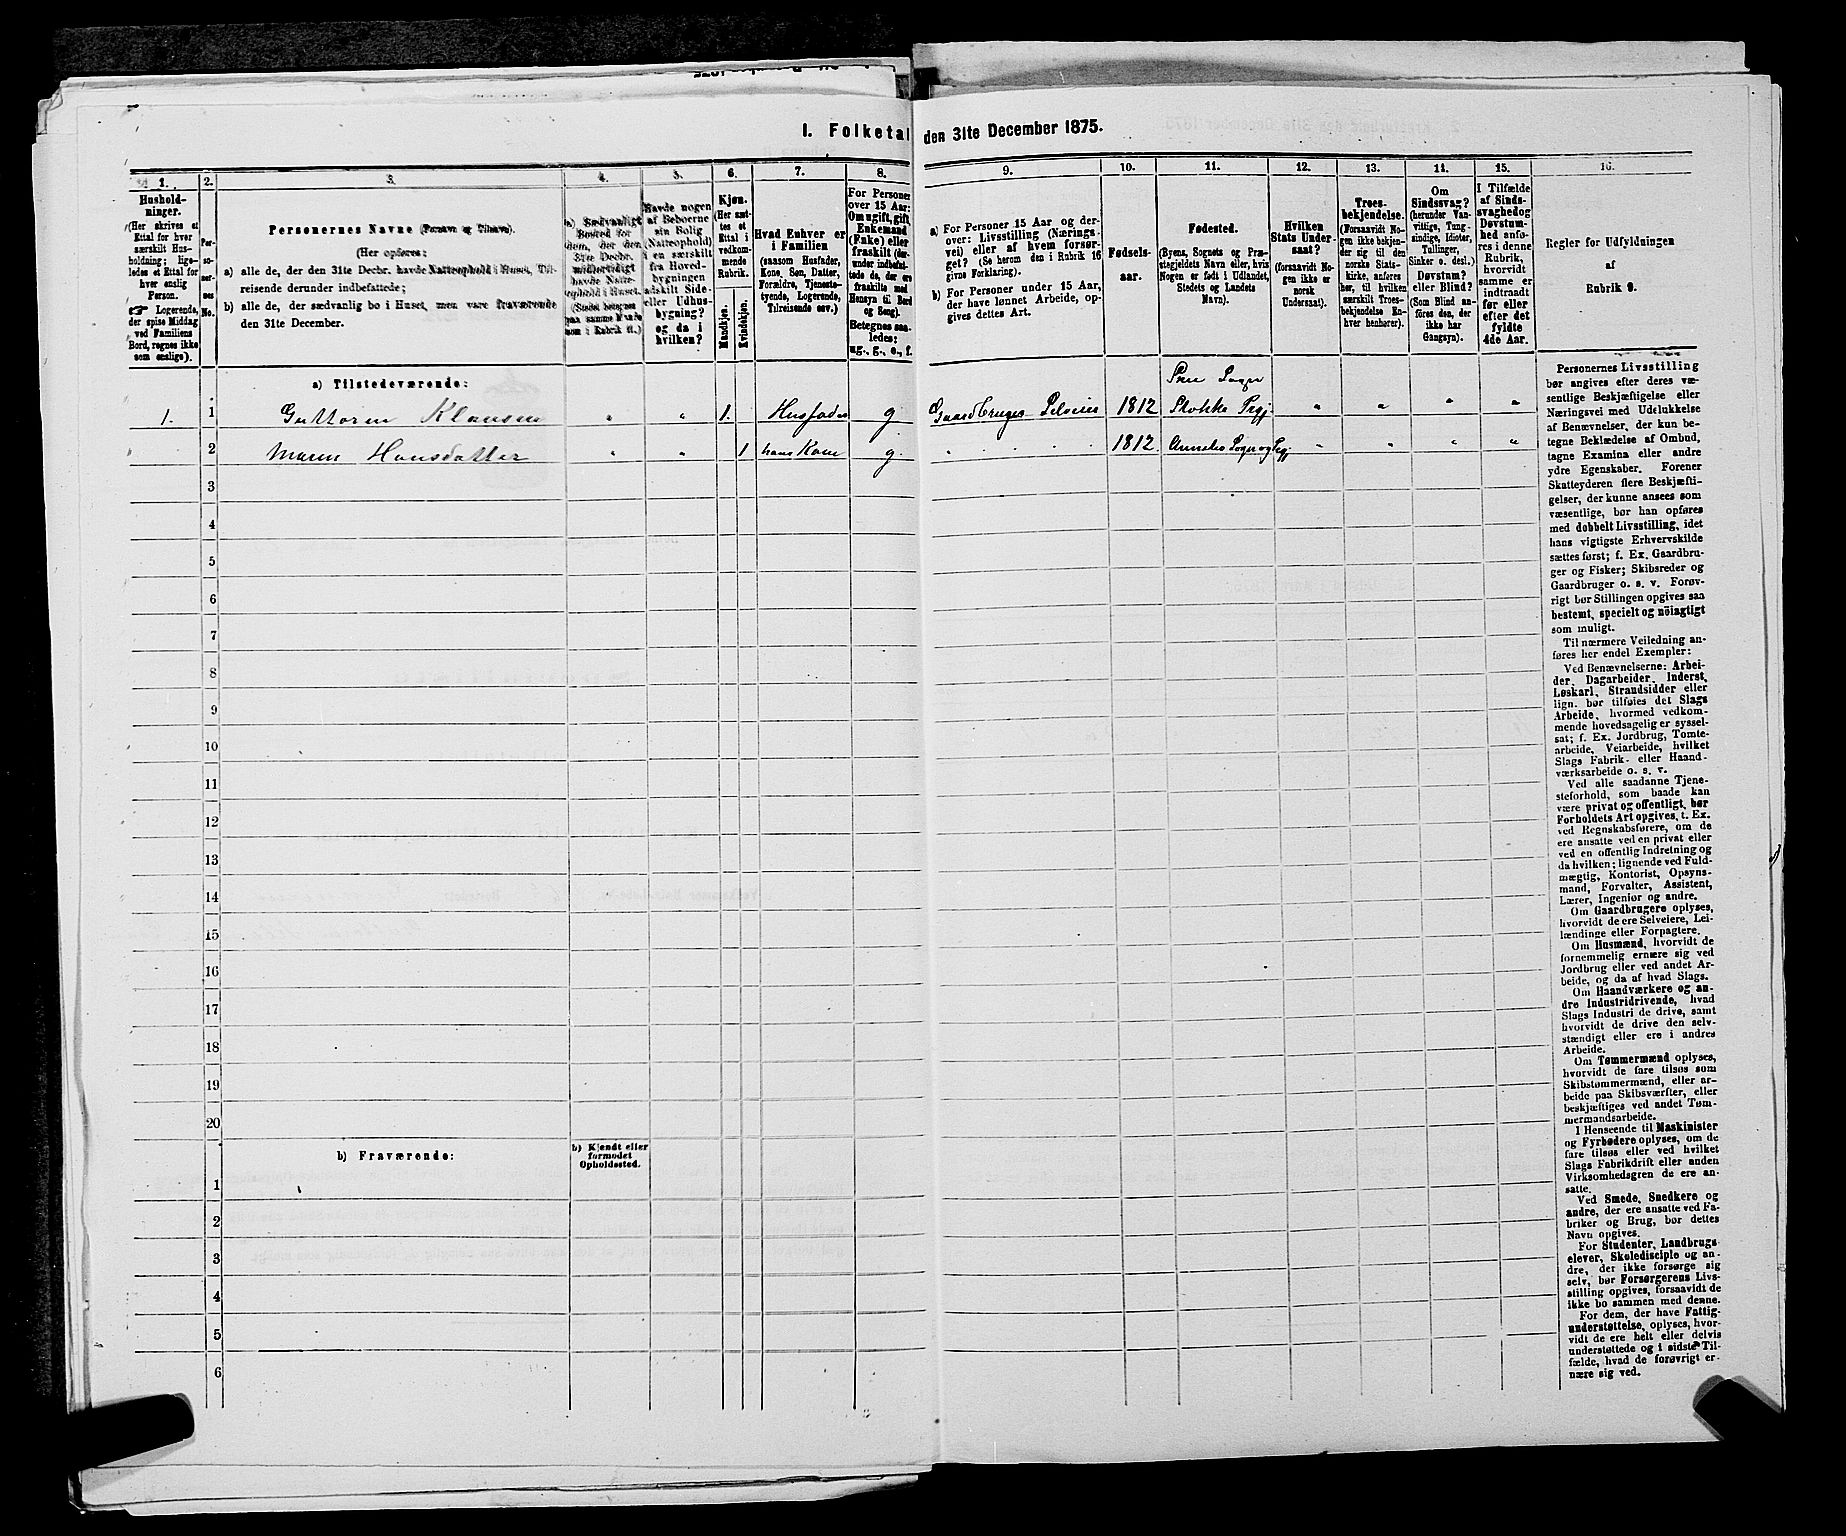 I. Folketal den 31te December 1875.
1.
2.
3.
4.
5.
6.
7.
8.
9.
10.
11.
12.
13.
14.
15.
16.
Hushold-
ninger.
(Her skrives et
Ettal for hver
særskilt Hus-
holdning; lige-
ledes et Ettal for
hver enslig
Person.
☞ Logerende,
der spise Middag
ved Familiens
Bord, regnes ikke
som enslige).
Per-
soner-
nes
No.
Personernes Navne (Fornavn og Tilnavn).
(Her opføres:
a) alle de, der den 31te Decbr. havde Natteophold i Huset, Til-
reisende derunder indbefattede;
b) alle de, der sædvanlig bo i Huset, men vare fraværende
den 31te December.
a) Sædvanligt
Bosted for
dem, der den
31te Decbr.
midlertidigt
havde Natte-
ophold i Huset.
Havde nogen
af Beboerne
sin Bolig
(Natteophold)
i en særskilt
fra Hoved-
bygningen
adskilt Side-
eller Udhus-
bygning?
og da i
hvilken?
Kjøn.
(Her sæt-
tes et
Ettal i
vedkom-
mende
Rubrik.
Mandkjøn.
Kvindekjøn.
Hvad Enhver er
i Familien
(saasom Husfader,
Kone, Søn, Datter,
Forældre, Tjeneste-
tyende, Logerende,
Tilreisende osv.)
For Personer
over 15 Aar:
Om ugift, gift
Enkemand
(Enke) eller
fraskilt (der-
under indbefat-
tede de, der ere
fraskilte med
Hensyn til Bord
og Seng).
Betegnes saa-
ledes:
ug., g., e., f.
a) For Personer 15 Aar og der-
over: Livsstilling (Nærings-
vei) eller af hvem forsør-
get? (Se herom den i Rubrik 16
givne Forklaring).
b) For Personer under 15 Aar,
der have lønnet Arbeide, op-
gives dettes Art.
Fødsels-
aar.
Fødested.
(Byens, Sognets og Præ-
stegjeldets Navn eller, hvis
Nogen er født i Udlandet,
Stedets og Landets
Navn).
Hvilken
Stats Under-
saat?
(forsaavidt No-
gen ikke er
norsk
Undersaat).
Troes-
bekjendelse.
(Forsaavidt No-
gen ikke bekjen-
der sig til den
norske Stats-
kirke, anføres
her, til hvilken
særskilt Troes-
bekjendelse En-
hver henhører).
Om
Sindssvag?
(herunder Van-
vittige, Tung-
sindige, Idioter,
Tullinger,
Sinker o. desl.).
Døvstum?
eller Blind?
(Som Blind an-
føres den, der
ikke har
Gangsyn).
I Tilfælde
af Sinds-
svaghed og
Døvstum-
hed anfø-
res i denne
Rubrik,
hvorvidt
samme er
indtraadt
før eller
efter det
fyldte
4de Aar.
Regler for Udfyldningen
af
Rubrik 9.
a) Tilstedeværende:
1. 1 Guttorm Klausen " " 1. Husfader g Gaardbruger Selveier 1812 Sem Sogn Stokke Prgj " " " "
2 Maren Hansdatter " " 1 hans Kone g " . . . 1812 Sogn og Prgj " " " "
3
4
5
6
7
8
9
10
11
12
13
14
15
16
17
18
19
20
b) Fraværende:
b) Kjendt eller
formodet
Opholdssted.
1
2
3
4
5
6
Personernes Livsstilling
bør angives efter deres væ-
sentlige Beskjæftigelse eller
Næringsvei med Udelukkelse
af Benævnelser, der kun be-
tegne Beklædelse af Ombud,
tagne Examina eller andre
ydre Egenskaber. Forener
Skatteyderen flere Beskjæfti-
gelser, der kunne ansees som
væsentlige, bør han opføres
med dobbelt Livsstilling, idet
hans vigtigste Erhvervskilde
sættes først; f. Ex. Gaardbru-
ger og Fisker; Skibsreder og
Gaardbruger o. s. v. Forøv-
rigt bør Stillingen opgives saa
bestemt, specielt og nöiagtigt
som muligt.
Til nærmere Veiledning an-
føres her endel Exempler:
Ved Benævnelserne: Arbei-
der, Dagarbeider, Inderst,
Løskarl, Strandsidder eller
lign. bør tilføies det Slags
Arbeide, hvormed vedkom-
mende hovedsagelig er syssel-
sat; f. Ex. Jordbrug, Tomte-
arbeide, Veiarbeide, hvilket
Slags Fabrik- eller Haand-
værksarbeide o. s. v.
Ved alle saadanne Tjene-
steforhold, som baade kan
være privat og offentligt, bør
Forholdets Art opgives, t. Ex.
ved Regnskabsførere, om de
ere ansatte ved en privat eller
ved en offentlig Indretning og
da hvilken; lignende ved Fuld-
mægtig, Kontorist, Opsyns-
mand, Forvalter, Assistent,
Lærer, Ingeniør og andre.
Om Gaardbrugere oplyses,
hvorvidt de ere Selveiere, Lei-
lændinge eller Forpagtere.
Om Husmænd, hvorvidt de
fornemmelig ernære sig ved
Jordbrug eller ved andet Ar-
beide, og da af hvad Slags.
Om Haandværkere og an-
dre Industridrivende, hvad
Slags Industri de drive, samt
hvorvidt de drive den selv-
stændigt eller ere i andres
Arbeide.
Om Tømmermænd oplyses,
hvorvidt de fare tilsøs som
Skibstømmermænd, eller ar-
beide paa Skibsværfter, eller
beskjæftiges ved andet Tøm-
mermandsarbeide.
I Henseende til Maskinister
og Fyrbødere oplyses, om de
fare tilsøs eller ved hvilket
Slags Fabrikdrift eller anden
Virksomhedsgren de ere an-
satte.
Ved Smede, Snedkere og
andre, der ere ansatte ved Fa-
briker og Brug, bør dettes
Navn opgives.
For Studenter, Landbrugs-
elever, Skoledisciple og an-
dre, der ikke forsørge sig
selv, bør Forsørgerens Livs-
stilling opgives, forsaavidt de
ikke bo sammen med denne.
For dem, der have Fattig-
understøttelse, oplyses, hvor-
vidt de ere helt eller delvis
understøttede og i sidste Til-
fælde, hvad de forøvrigt er-
nære sig ved.